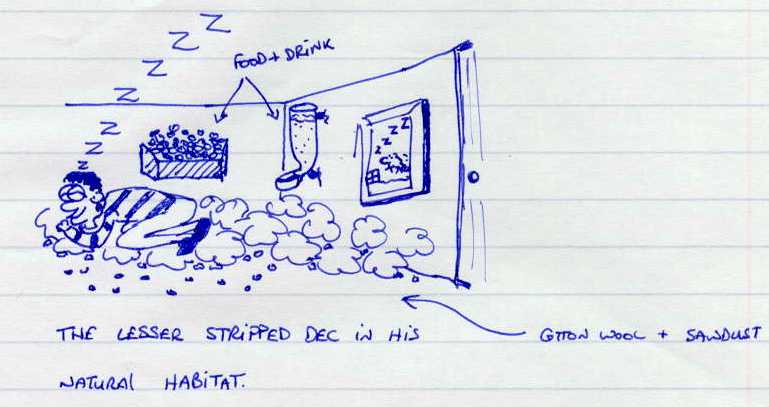 Z
Z
Z
Z
Z
Z
Z
FOOD + DRINK
Z Z Z Z
THE LESSER STRIPPED DEC IN HIS
NATURAL HABITAT.
COTTON WOOL + SAWDUST